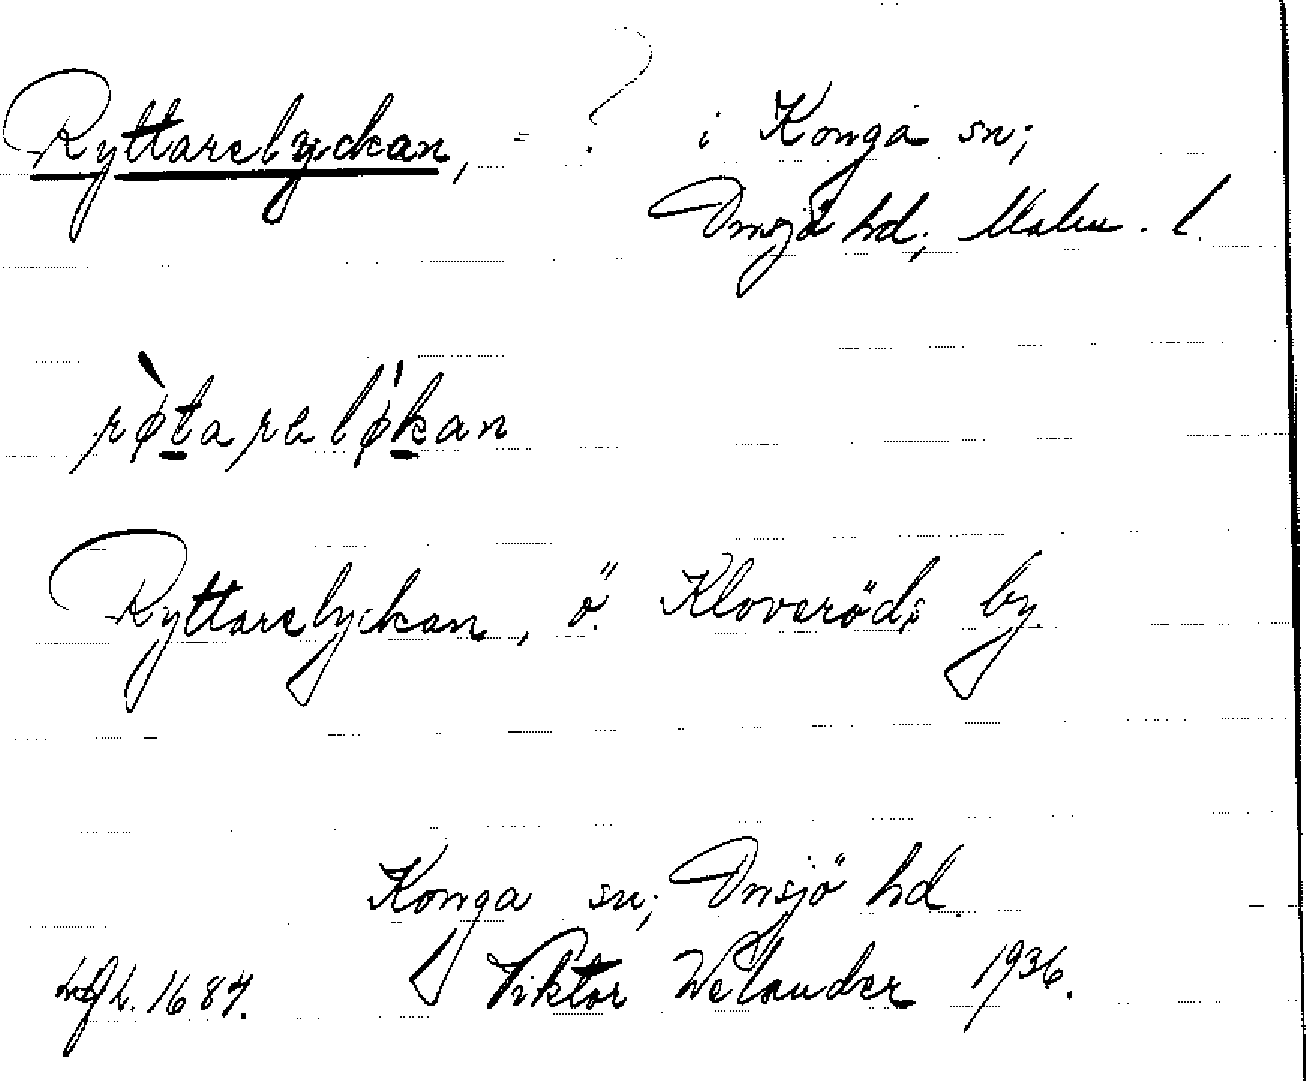 Ryttarelyckan, = ? i Konga sn;
Onsjö hd; Malm. l.
rø̀tarelø'kan
Ryttarelyckan, ö. Kloveröds by.
Konga sn; Onsjö hd.
1684. Viktor Welander 1936.